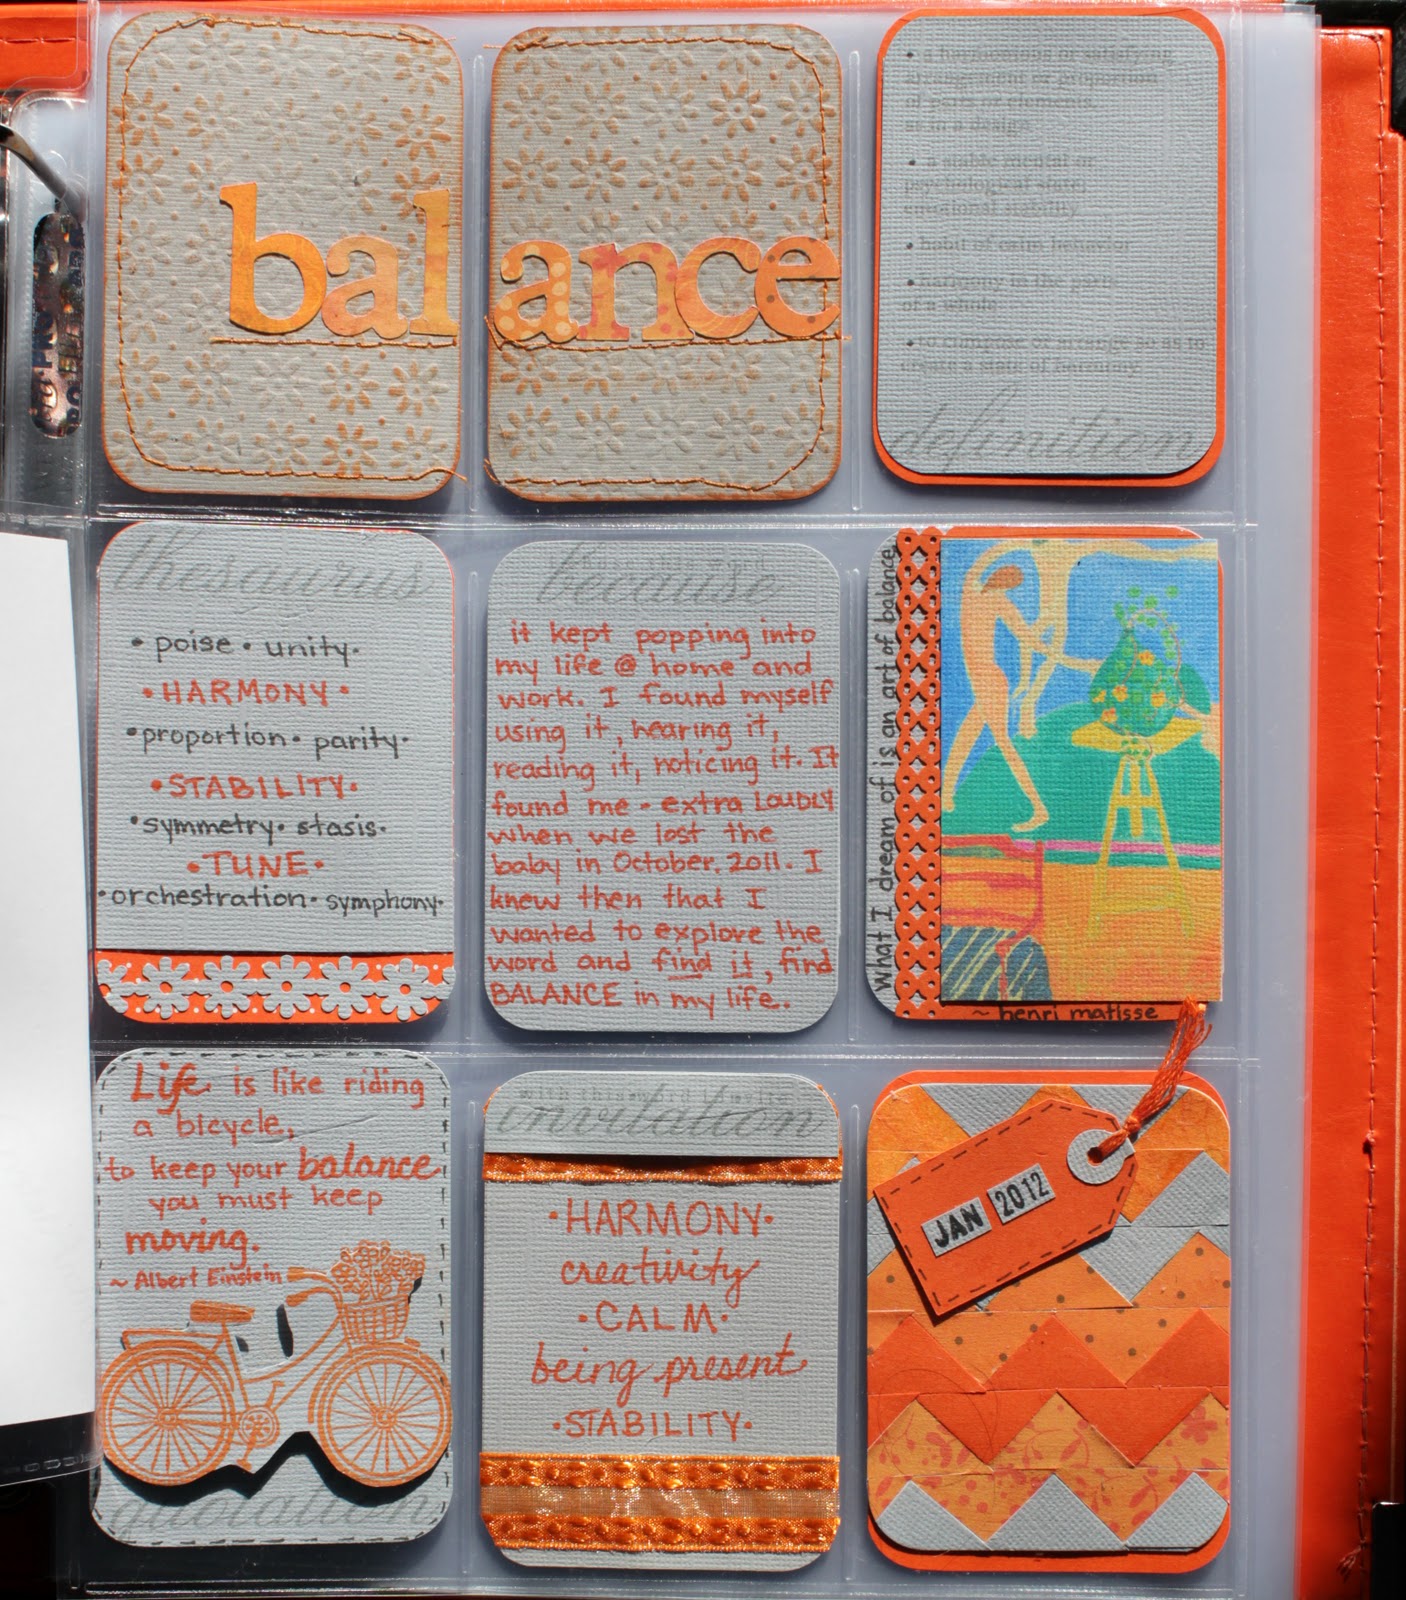 balance
• a harmonious or satisfying
arrangement or proportion
of parts or elements,
as in a design
• a stable mental or
psychological state;
emotional stability
• habit of calm behavior
• harmony in the parts
of a whole
• to compose or arrange so as to
create a state of harmony
definition
thesaurus
• poise • unity •
• HARMONY •
• proportion • parity •
• STABILITY •
• symmetry • stasis •
• TUNE •
• orchestration • symphony •
I chose this word
because
it kept popping into
my life @ home and
work. I found myself
using it, hearing it,
reading it, noticing it. It
found me - extra LOUDLY
when we lost the
baby in October, 2011. I
knew then that I
wanted to explore the
word and find it, find
BALANCE in my life.
What I dream of is an art of balance
~ henri matisse
Life is like riding
a bicycle,
to keep your balance
you must keep
moving.
~ Albert Einstein
quotation
with this word I invite
invitation
• HARMONY •
creativity
• CALM •
being present
• STABILITY •
JAN 2012